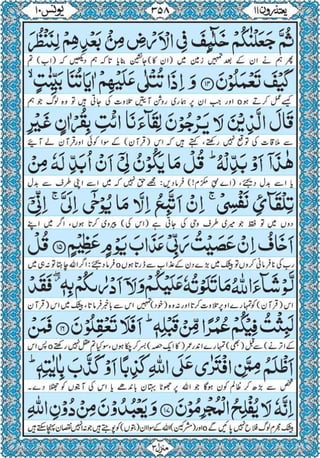 یعتذرون ۱۱ ۳۵۸ یونس ۱۰
ثُمَّ جَعَلْنٰكُمْ خَلٰٓئِفَ فِی الْاَرْضِ مِنْۢ بَعْدِهِمْ لِنَنْظُرَ
پھر ہم نے ان کے بعد تمہیں زمین میں (ان کا) جانشین بنایا تاکہ ہم دیکھیں کہ (اب) تم
كَیْفَ تَعْمَلُوْنَ ﴿۱۴﴾ وَ اِذَا تُتْلٰی عَلَیْهِمْ اٰیَاتُنَا بَیِّنٰتٍ ۙ
کیسے عمل کرتے ہو o اور جب ان پر ہماری روشن آیتیں تلاوت کی جاتی ہیں تو وہ لوگ جو ہم
قَالَ الَّذِیْنَ لَا یَرْجُوْنَ لِقَآءَنَا ائْتِ بِقُرْاٰنٍ غَیْرِ
سے ملاقات کی توقع نہیں رکھتے، کہتے ہیں کہ اس (قرآن) کے سوا کوئی اور قرآن لے آئیے
هٰذَاۤ اَوْ بَدِّلْهُ ؕ قُلْ مَا یَكُوْنُ لِیْۤ اَنْ اُبَدِّلَهٗ مِنْ
یا اسے بدل دیجئے، (اے نبیِ مکرّم!) فرما دیں: مجھے حق نہیں کہ میں اسے اپنی طرف سے بدل
تِلْقَآئِ نَفْسِیْ ۚ اِنْ اَتَّبِعُ اِلَّا مَا یُوْحٰۤی اِلَیَّ ۚ اِنِّیْۤ
دوں میں تو فقط جو میری طرف وحی کی جاتی ہے (اس کی) پیروی کرتا ہوں، اگر میں اپنے
اَخَافُ اِنْ عَصَیْتُ رَبِّیْ عَذَابَ یَوْمٍ عَظِیْمٍ ﴿۱۵﴾ قُلْ
رب کی نافرمانی کروں تو بیشک میں بڑے دن کے عذاب سے ڈرتا ہوں o فرما دیجئے: اگر اللہ چاہتا تو نہ ہی میں
لَّوْ شَآءَ اللّٰهُ مَا تَلَوْتُهٗ عَلَیْكُمْ وَ لَاۤ اَدْرٰىكُمْ بِهٖ ۖ فَقَدْ
اس (قرآن) کو تمہارے اوپر تلاوت کرتا اور نہ وہ (خود) تمہیں اس سے باخبر فرماتا، بیشک میں اس (قرآن
لَبِثْتُ فِیْكُمْ عُمُرًا مِّنْ قَبْلِهٖ ؕ اَفَلَا تَعْقِلُوْنَ ﴿۱۶﴾ فَمَنْ
کے اترنے) سے قبل (بھی) تمہارے اندر عمر (کا ایک حصہ) بسر کر چکا ہوں، سو کیا تم عقل نہیں رکھتے o پس اس
اَظْلَمُ مِمَّنِ افْتَرٰی عَلَی اللّٰهِ كَذِبًا اَوْ كَذَّبَ بِاٰیٰتِهٖ ؕ
شخص سے بڑھ کر ظالم کون ہوگا جو اللہ پر جھوٹا بہتان باندھے یا اس کی آیتوں کو جھٹلا دے۔
اِنَّهٗ لَا یُفْلِحُ الْمُجْرِمُوْنَ ﴿۱۷﴾ وَ یَعْبُدُوْنَ مِنْ دُوْنِ اللّٰهِ
بیشک مجرم لوگ فلاح نہیں پائیں گے o اور (مشرکین) اللہ کے سوا ان (بتوں) کو پوجتے ہیں جو نہ انہیں نقصان پہنچا سکتے ہیں
منزل ۳